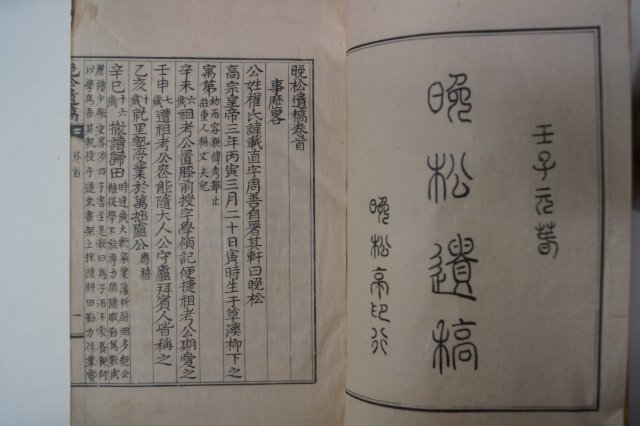 壬子元春
晚松遺稿
晚松亭印行
晚松遺稿卷首
事歷畧
公姓權氏諱載直字周善自署其軒曰晚松
高宗皇帝三年丙寅三月二十日寅時生于草溪柳下之
寓第
辛未六歲祖考公置膝前授字學領記便捷祖考公期愛之
壬申七歲遭祖考公喪能隨大人公守廬拜賓人皆稱之
乙亥十歲就里塾受業於萬拙廬公應禧
辛巳十六歲撤讀歸田
晚松遺稿
卷首
一